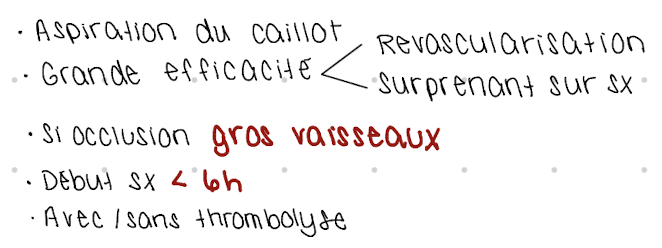 · Aspiration du caillot
· Grande efficacité < Revascularisation
Surprenant sur sx
· Si occlusion gros vaisseaux
· Début sx < 6h
· Avec / sans thrombolyse